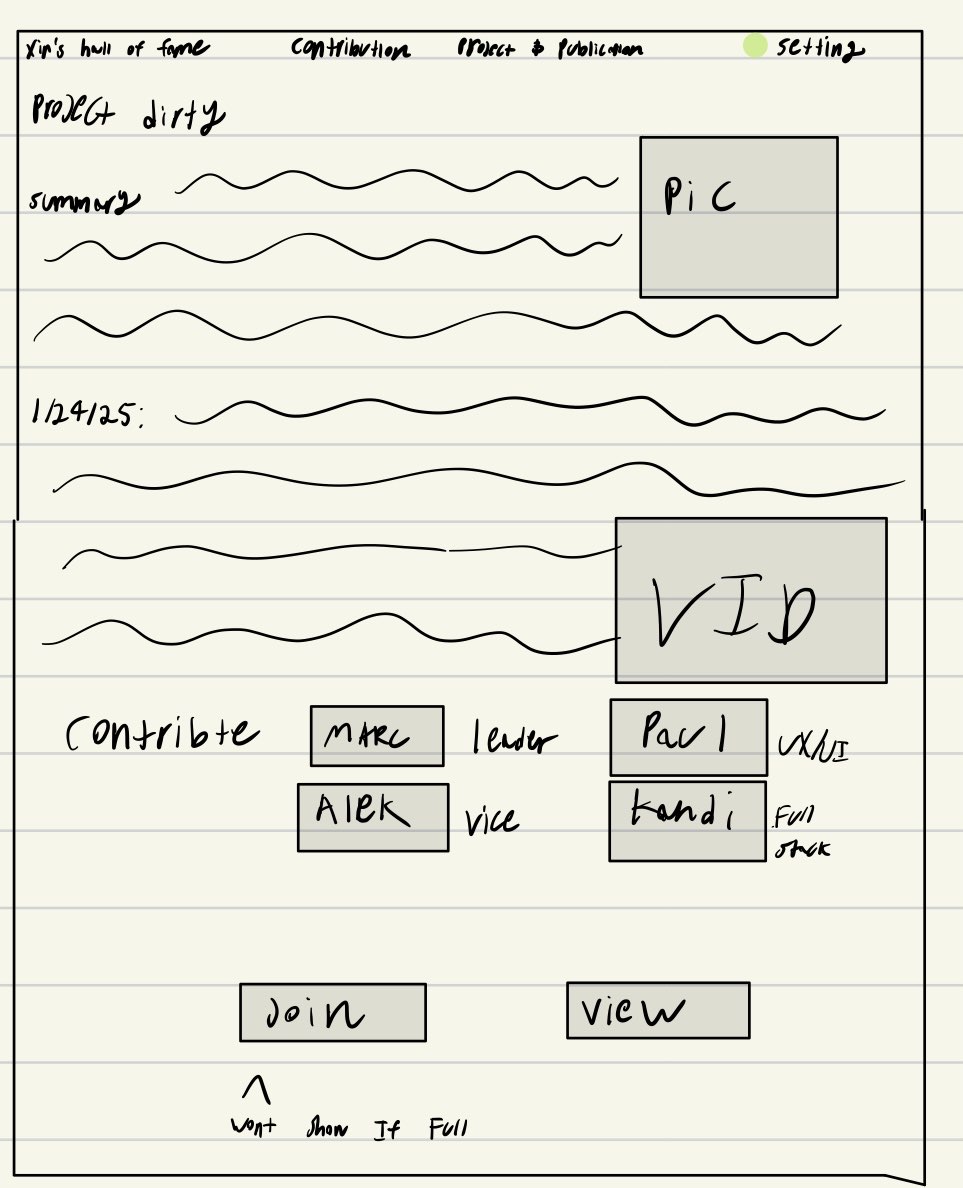 Xin's hall of fame contribution Project & Publication setting
Project dirty
Pic
summary
1/24/25:
VID
Contribte MARC leader Paul UX/UI
Alek vice Kandi Full
stack
Join view
^
wont show If Full